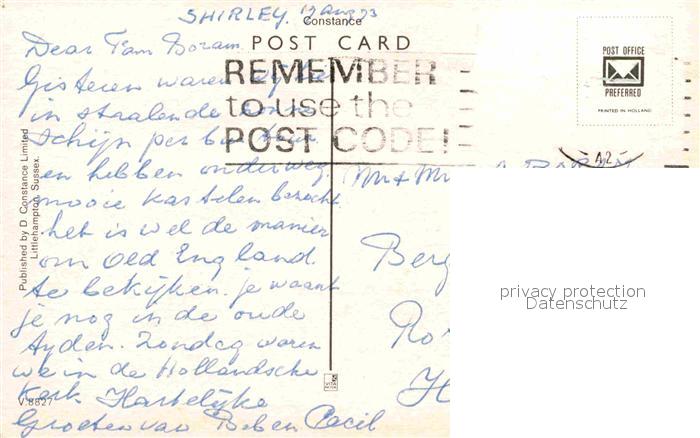 SHIRLEY. 12 Aug 73
Constance
POST CARD
REMEMBER
to use the
POST CODE!
POST OFFICE
PREFERRED
PRINTED IN HOLLAND
A2
Dear Fam Boram
Gisteren waren
in stralende zonne
schijn per bus
en hebben onderweg
mooie kastelen bezocht.
het is wel de manier
om Old England
te bekijken. je waant
je nog in de oude
tyden. Zondag waren
we in de Hollandsche
Kerk. Hartelyke
Groeten van Beb en Cecil
Mr + M
Berg
Ro
H
Published by D. Constance Limited
Littlehampton, Sussex.
V.8827
privacy protection
Datenschutz